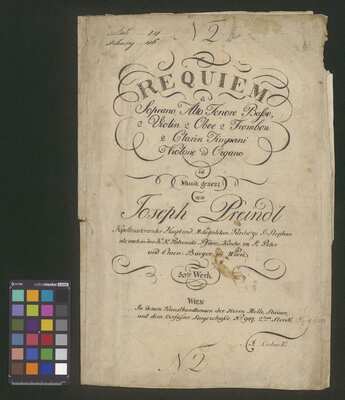 N 2
REQUIEM
a
Soprano Alto Tenore Basso,
2 Violin 2 Oboe 2 Tromboni
2 Clarin Timpani
Violone ed Organo
in
Musik gesezt
von
Joseph Preindl
Kapellmeister der Haupt und Metropolitan Kirche zu St. Stephan
wie auch in der K. K. Patronats Pfarr Kirche zu St. Peter
und Ehren Bürger in Wien
50tes Werk.
WIEN
In ihren Kunsthandlungen der Herrn Mollo, Steiner,
und dem Verfasser Singerstrasse No.
N 2